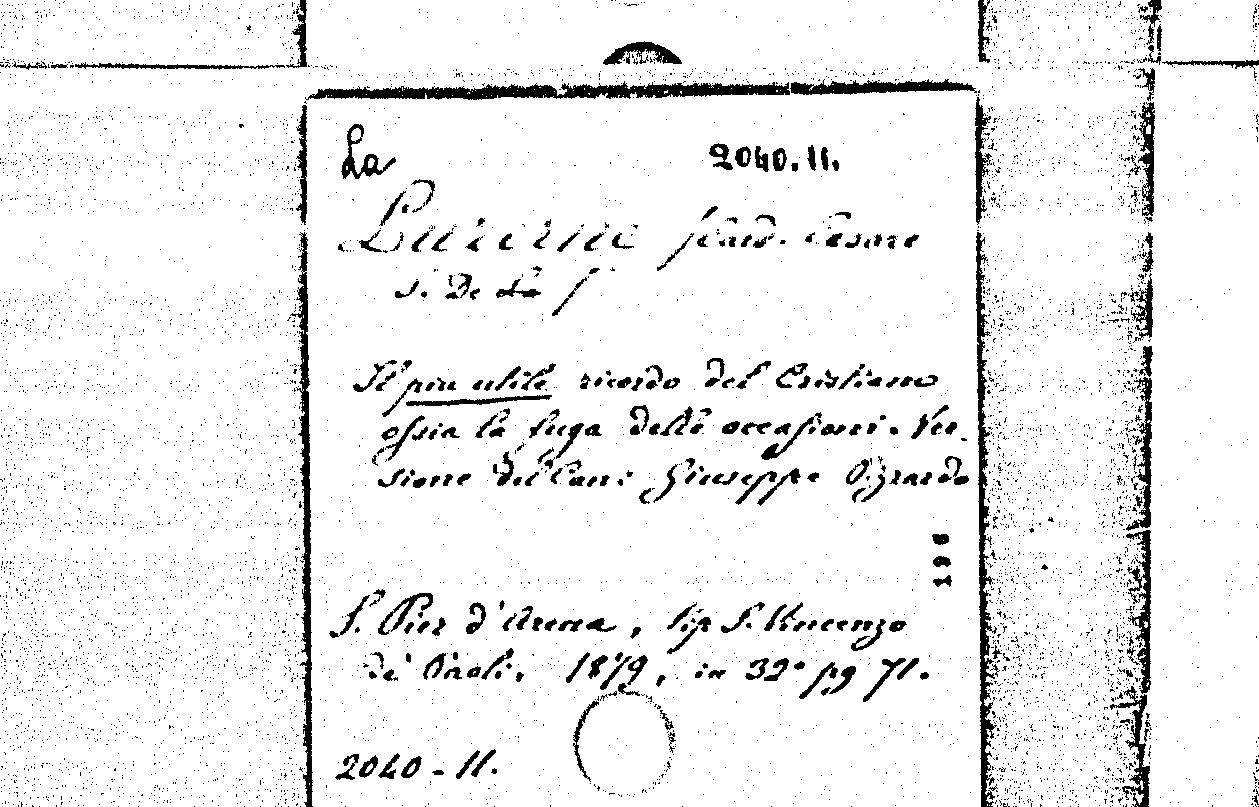 La
2040.11.
Luzerne /Card. Cesare
G. De La /
Il piu utile ricordo del Cristiano
ossia la fuga delle occasioni. Ver-
sione del Can: Giuseppe
196
S. Pier d'Arena, tip S. Vincenzo
de' Paoli, 1879, in 32° pg 71.
2040 - 11.